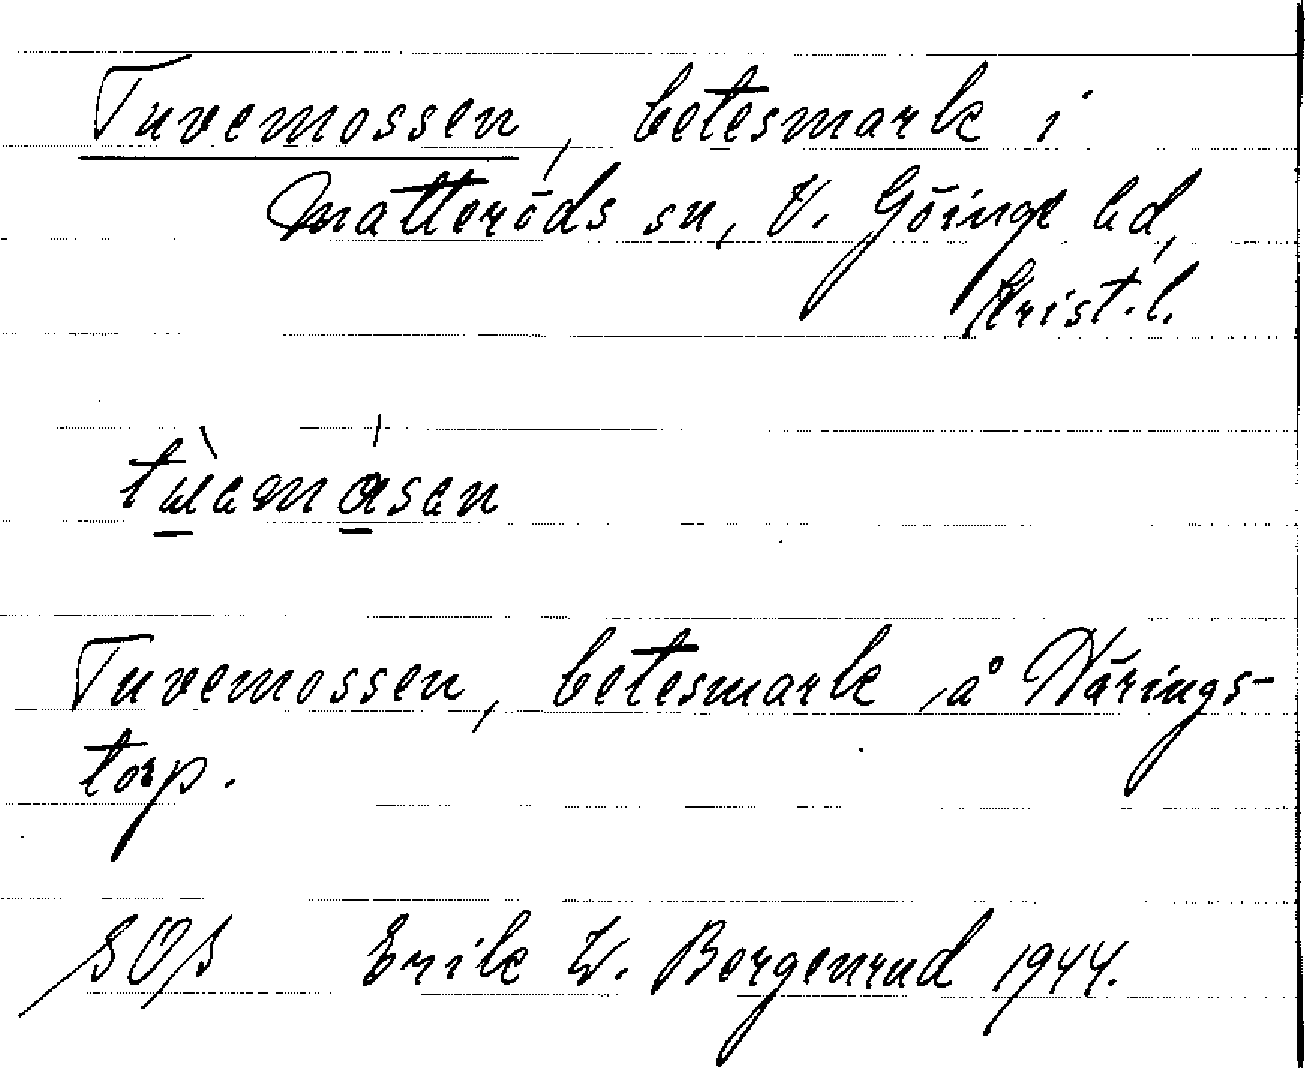 Tuvemossen, betesmark i
Matteröds sn, V. Göinge hd,
Krist. l.
Tuvemossen, betesmark å Wärings-
torp.
SOS Erik W. Borgenrud 1944.